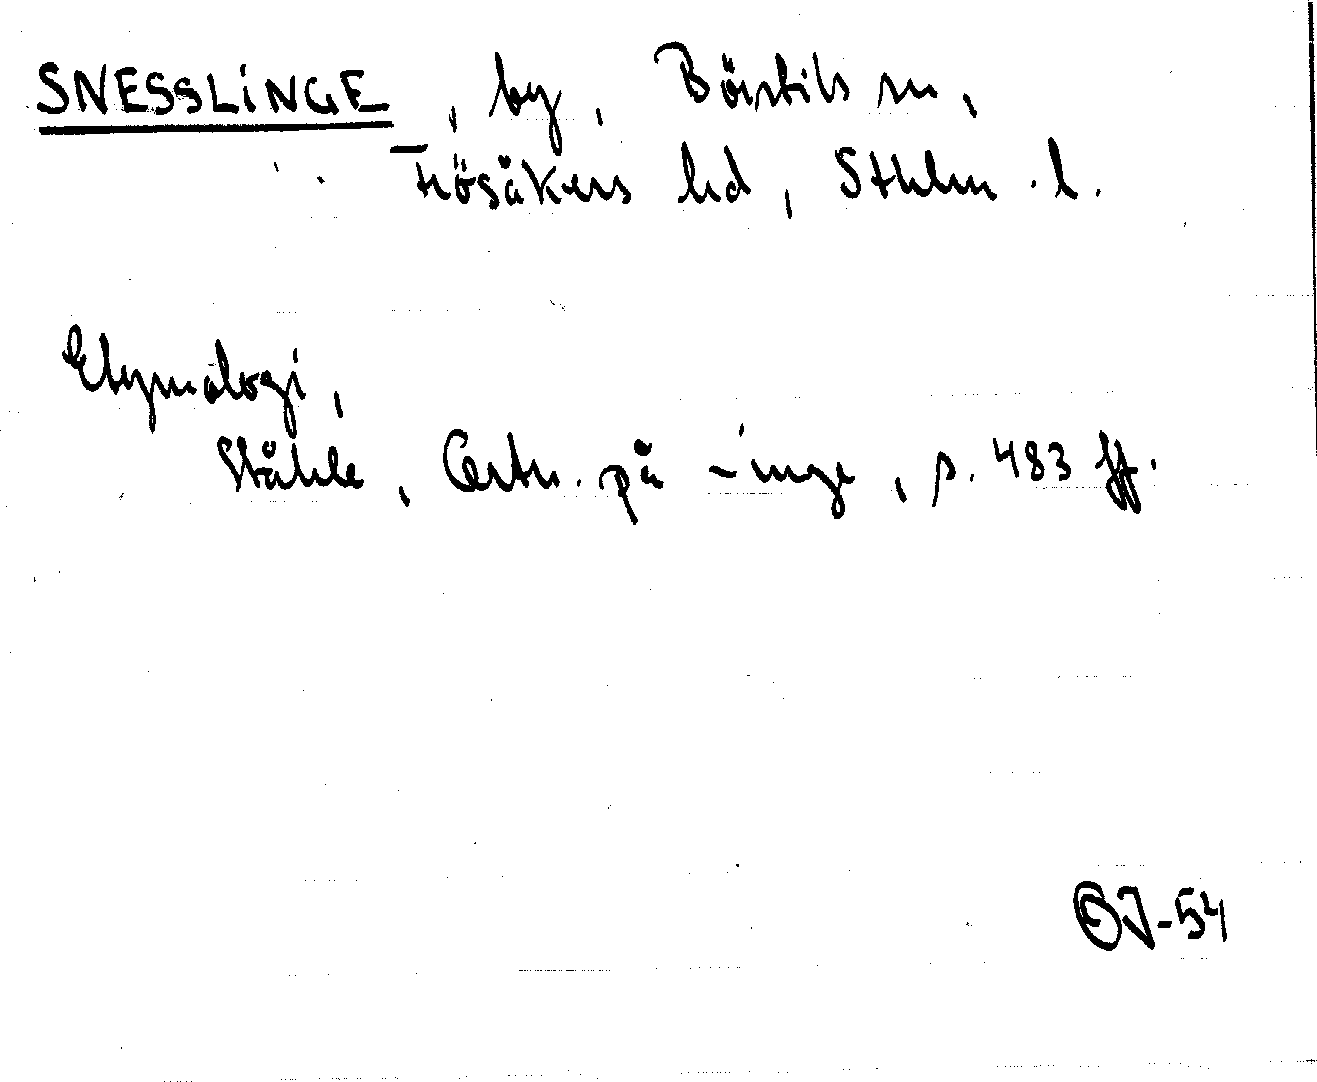 SNESSLINGE, by, Börstils sn,
Frösåkers hd, Sthlm. l.
Etymologi,
Ståhle, Ortn. på -inge, s. 483 ff.
OJ-54